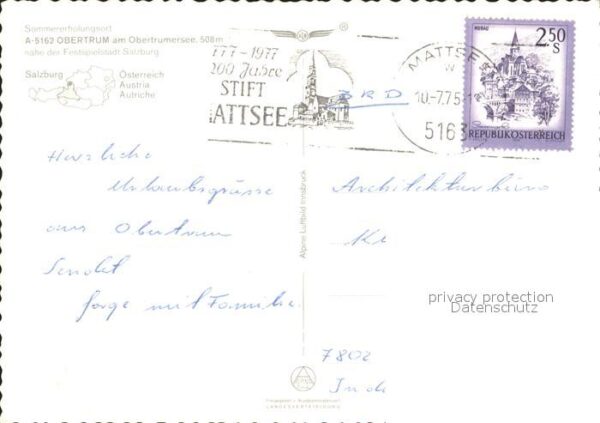 Sommererholungsort
A-5162 OBERTRUM am Obertrumersee, 508m
nahe der Festspielstadt Salzburg
Salzburg
Österreich
Austria
Autriche
777-1977
200 Jahre
STIFT
ATTSEE
MATTS
10.-7.75
5163
MURAU
2.50
S
REPUBLIK ÖSTERREICH
BRD
Herzliche
Urlaubsgrüsse
aus Obertrum
Sendet
mit Familie
Alpine Luftbild Innsbruck
Architekturbüro
privacy protection
Datenschutz
7802
LANDESVERTEIDIGUNG